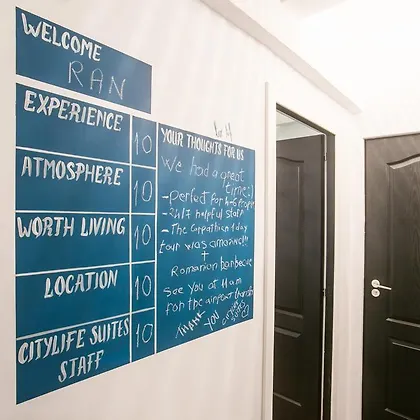 WELCOME
RAN
EXPERIENCE 10
ATMOSPHERE 10
WORTH LIVING 10
LOCATION 10
CITYLIFE SUITES STAFF 10
YOUR THOUGHTS FOR US
We had a great
time:)
- perfect for
- 24/7 helpful staff
- The carpathian 1 day
tour was amazing!!!
+
Romanian barbecue
see you at 11am
for the airport
THANK
YOU